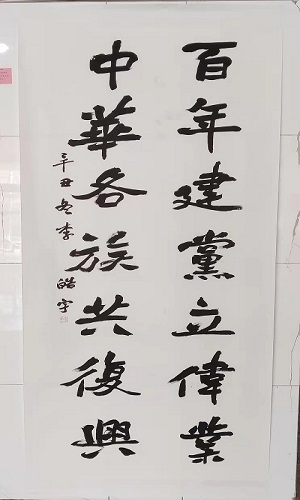 百年建黨立偉業
中華各族共復興
辛丑冬李皓宇